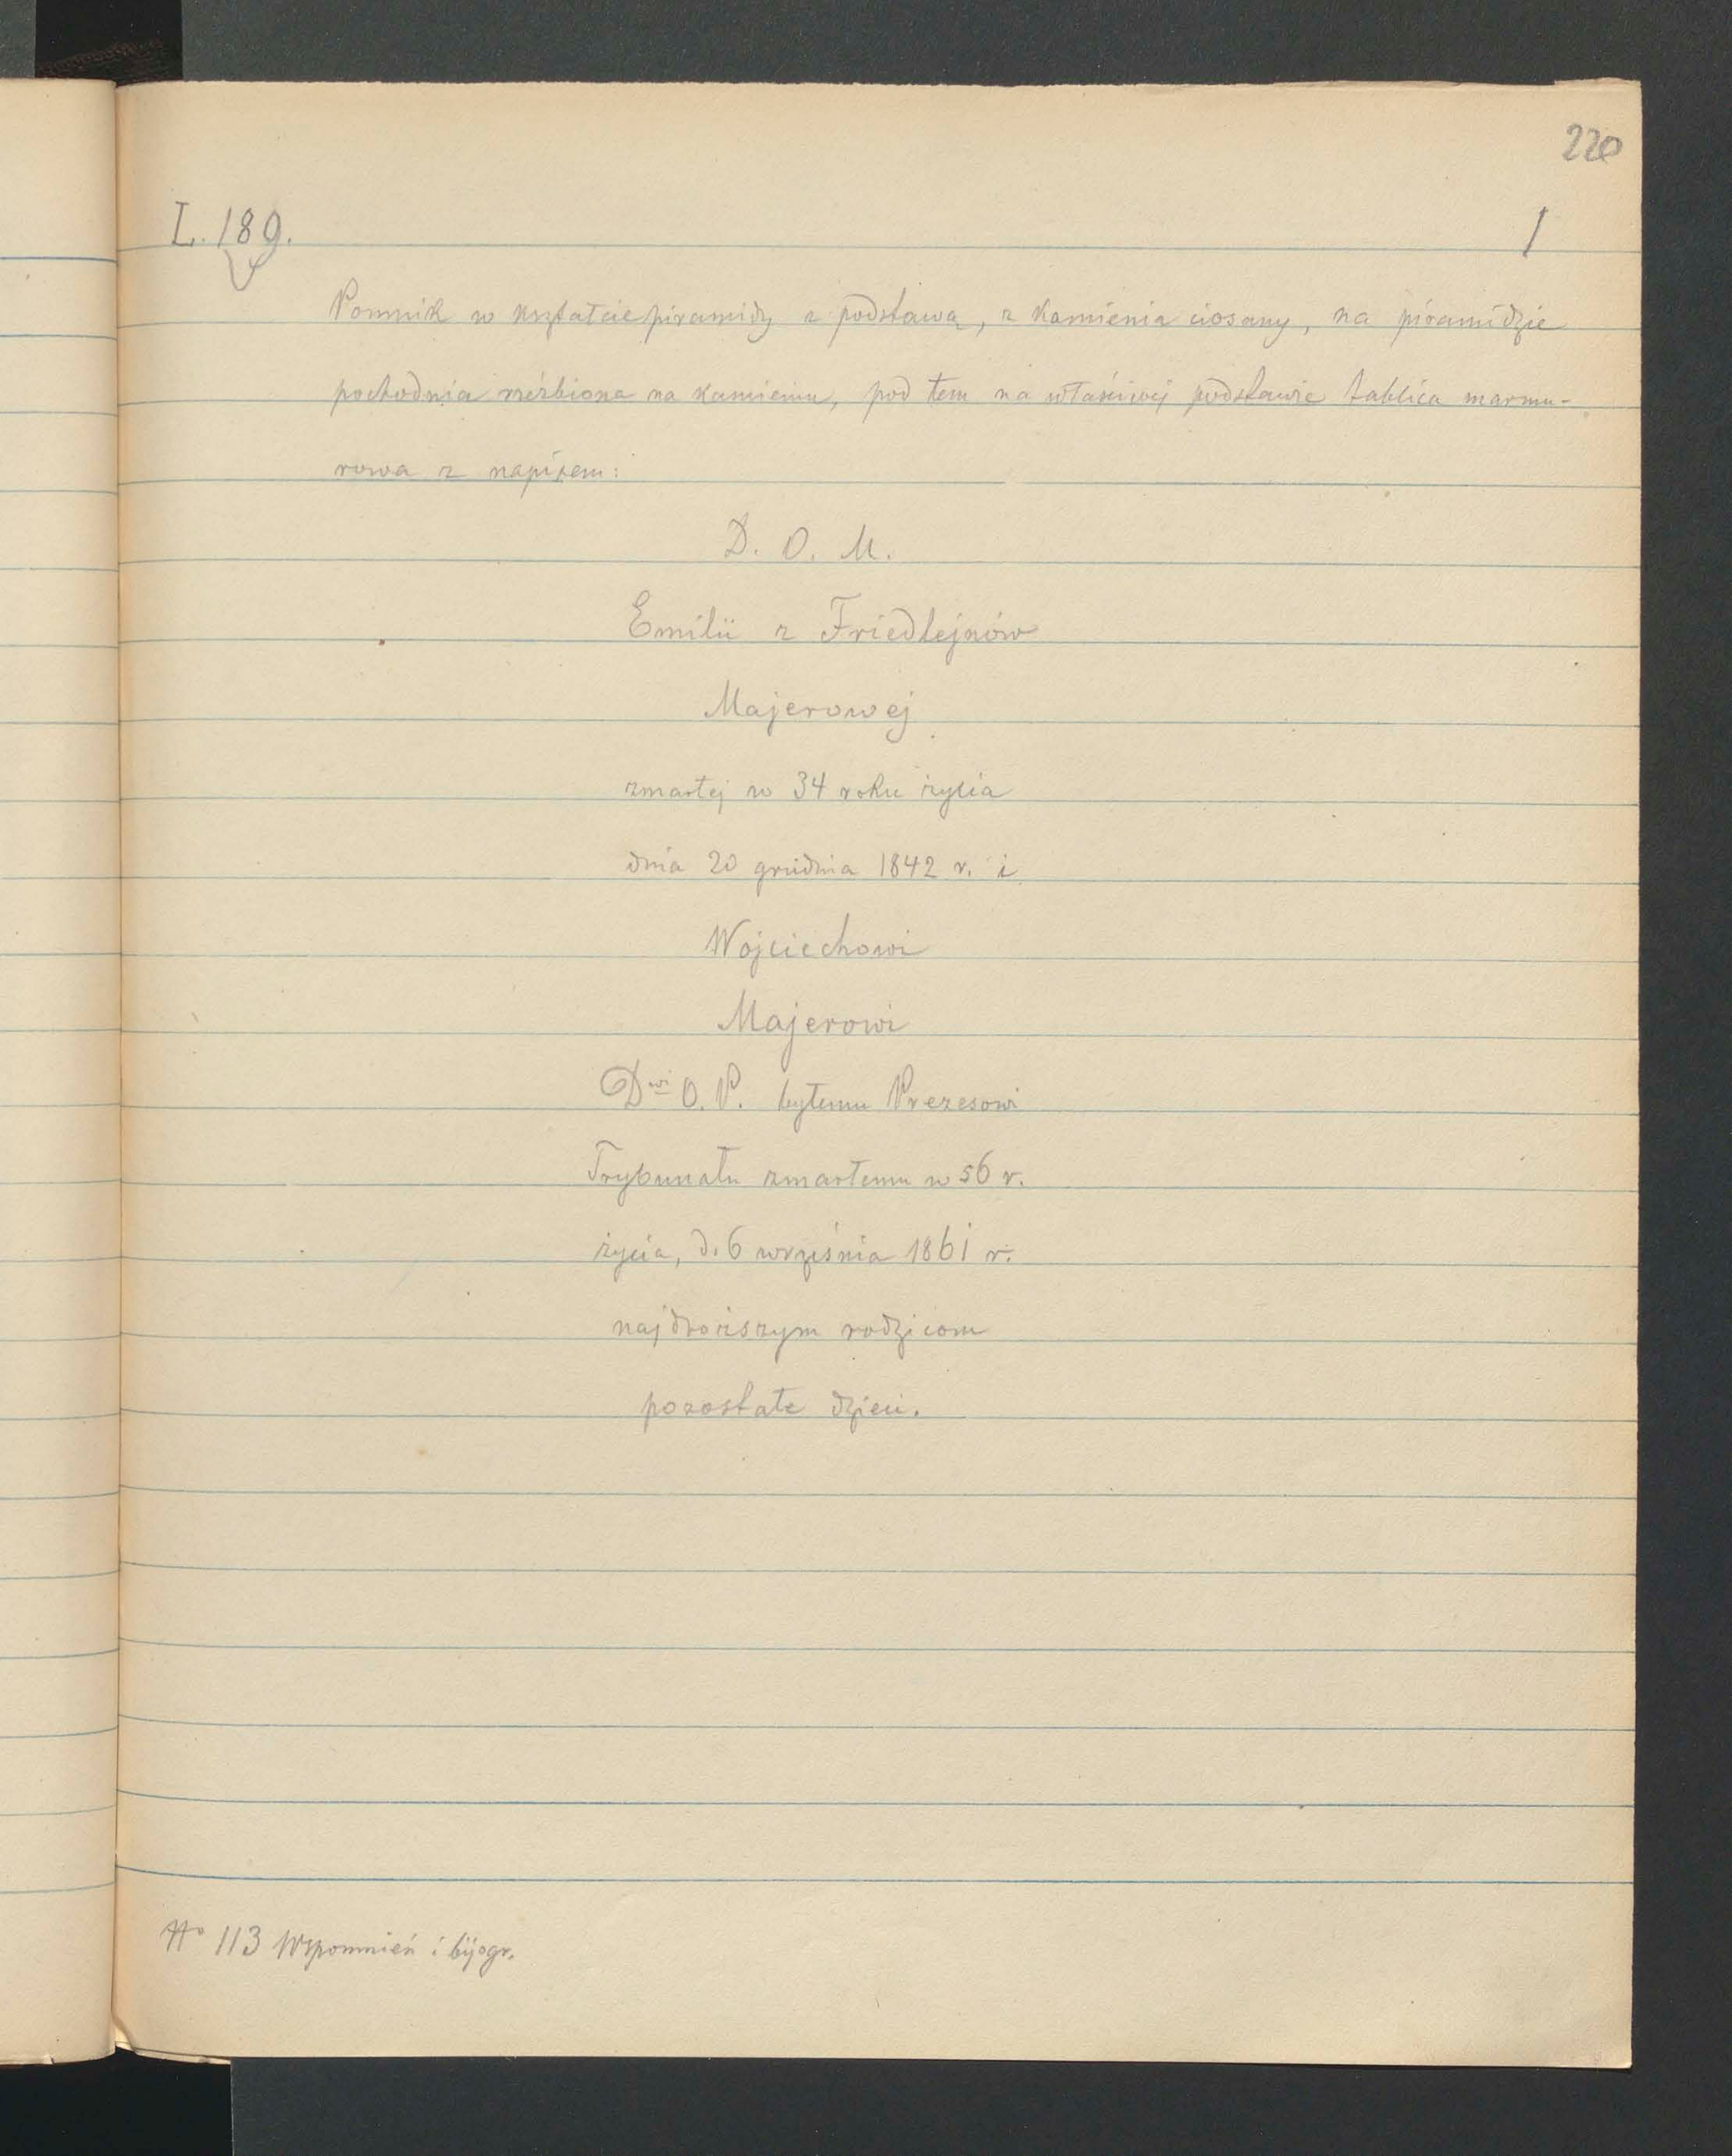 220
L. 189.
1
Pomnik w kształcie piramidy z podstawą, z kamienia ciosany, na piramidzie
pochodnia rzeźbiona na kamieniu, pod tem na właściwej podstawie tablica marmu-
rowa z napisem:
D. O. M.
Emilii z Friedlejnów
Majerowej
zmarłej w 34 roku życia
dnia 20 grudnia 1842 r. i
Wojciechowi
Majerowi
Dwi O. P. byłemu Prezesowi
Trybunału zmarłemu w 56 r.
życia, d. 6 września 1861 r.
najdroższym rodzicom
pozostałe dzieci.
No 113 Wspomnień i bijogr.